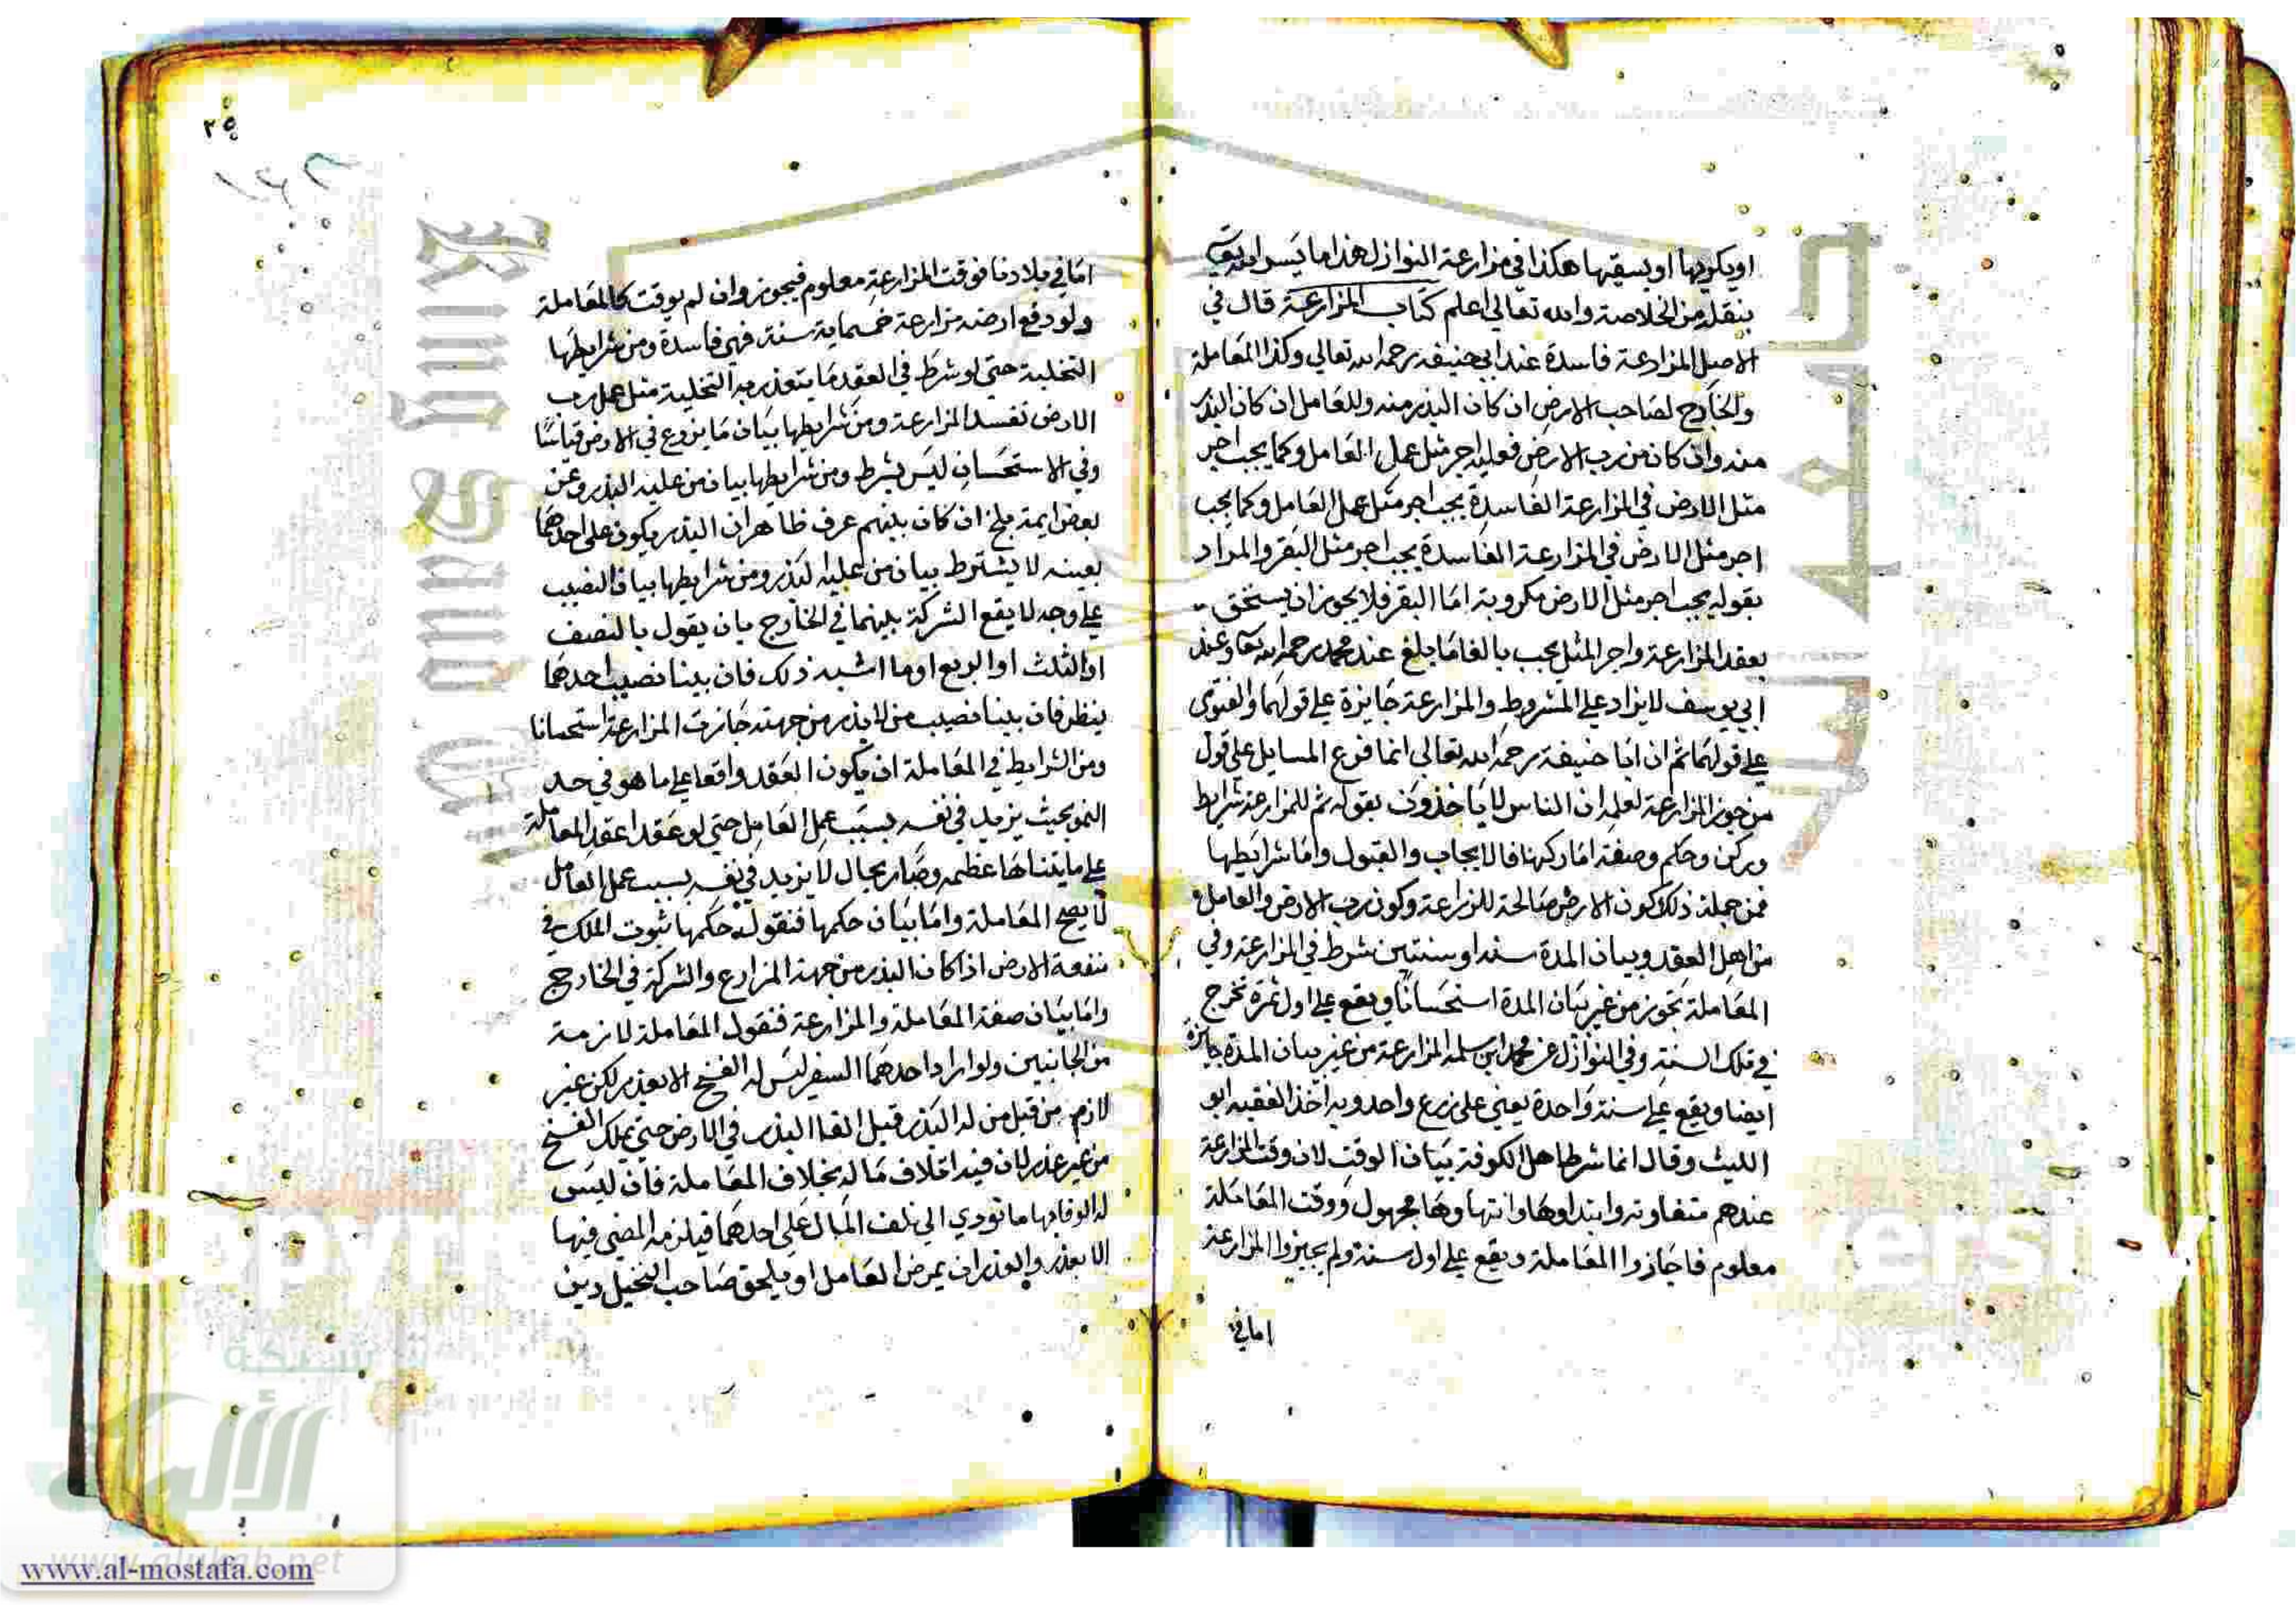 او يكريها او يسقيها هكذا في مزارعة النوازل هذا ما يسر الله
بنقله من الخلاصة والله تعالى اعلم كتاب المزارعة قال في
الاصل المزارعة فاسدة عند ابي حنيفه رحمه الله تعالي وكذا المعاملة
والخارج لصاحب الارض ان كان البذر منه وللعامل ان كان البذر
منه وان كان من رب الارض فعليه اجر مثل عمل العامل وكما يجب اجر
مثل الارض في المزارعة الفاسدة يجب اجر مثل عمل العامل وكما يجب
اجر مثل الارض في المزارعة الفاسدة يجب اجر مثل البقر والمراد
بقوله يجب اجر مثل الارض مكروبة اما البقر فلا يجوز ان يستحق
بعقد المزارعة واجر المثل يجب بالغا ما بلغ عند محمد رحمه الله تعا وعند
ابي يوسف لا يزاد علي المشروط والمزارعة جايزة علي قولهما والفتوى
علي قولهما ثم ان ابا حنيفة رحمه الله تعالى انما فرع المسايل علي قول
من جوز المزارعة لعلمه ان الناس لا ياخذون بقوله ثم للمزارعة شرايط
وركن وحكم وصفة اما ركنها فالايجاب والقبول واما شرايطها
فمن جملة ذلك كون الارض صالحة للزراعة وكون رب الارض والعامل
من اهل العقد وبيان المدة سنه او سنتين شرط في المزارعة وفي
المعاملة تجوز من غير بيان المدة استحسانا ويقع علي اول ثمرة تخرج
في تلك السنة وفي النوازل عن محمد ابن سلمه المزارعة من غير بيان المدة جايزة
ايضا ويقع علي سنة واحدة يعني على زرع واحد وبه اخذ الفقيه ابو
الليث وقال انما شرط اهل الكوفة بيان الوقت لان وقت المزارعة
عندهم متفاوته وابتداوها وانتهاوها مجهول ووقت المعاملة
معلوم فاجازوا المعاملة ويقع علي اول سنة ولم يجيزوا المزارعة
اما في
٢٥
اما في بلادنا فوقت المزارعة معلوم فيجوز وان لم يوقت كالمعاملة
ولو دفع ارضه مزارعة خمسماية سنة فهي فاسدة ومن شرايطها
التخلية حتي لو شرط في العقد ما يتعذر به التخلية مثل عمل رب
الارض تفسد المزارعة ومن شرايطها بيان ما يزرع في الارض قياسا
وفي الاستحسان ليس بشرط ومن شرايطها بيان من عليه البذر وعن
بعض ايمة بلخ ان كان بينهم عرف ظاهر ان البذر يكون على احدهما
بعينه لا يشترط بيان من عليه البذر ومن شرايطها بيان النصيب
علي وجه لا يقع الشركة بينهما في الخارج بان يقول بالنصف
او الثلث او الربع او ما اشبه ذلك فان بينا نصيب احدهما
ينظر فان بينا نصيب من لا بذر من جهته جازت المزارعة استحسانا
ومن الشرايط في المعاملة ان يكون العقد واقعا علي ما هو في حد
النمو بحيث يزيد في نفسه بسبب عمل العامل حتي لو عقدا عقد المعاملة
علي ما يتناها عظمه وصار بحال لا يزيد في نفسه بسبب عمل العامل
لا يصح المعاملة واما بيان حكمها فنقول حكمها ثبوت الملك في
منفعة الارض اذا كان البذر من جهة المزارع والشركة في الخارج
واما بيان صفة المعاملة والمزارعة فنقول المعاملة لازمة
من الجانبين ولو اراد احدهما السفر ليس له الفسخ الا بعذر لكن غير
لازم من قبل من له البذر قبل القا البذر في الارض حتي يملك الفسخ
من غير عذر لان فيه اتلاف ماله بخلاف المعاملة فان ليس
له الوفا بها ما تودي الي تلف المال علي احدهما فيلزمه المضي فيها
الا بعذر والعذر ان يمرض العامل او يلحق صاحب النخيل دين
شبكة
الألوكة
www.alukah.net
www.al-mostafa.com